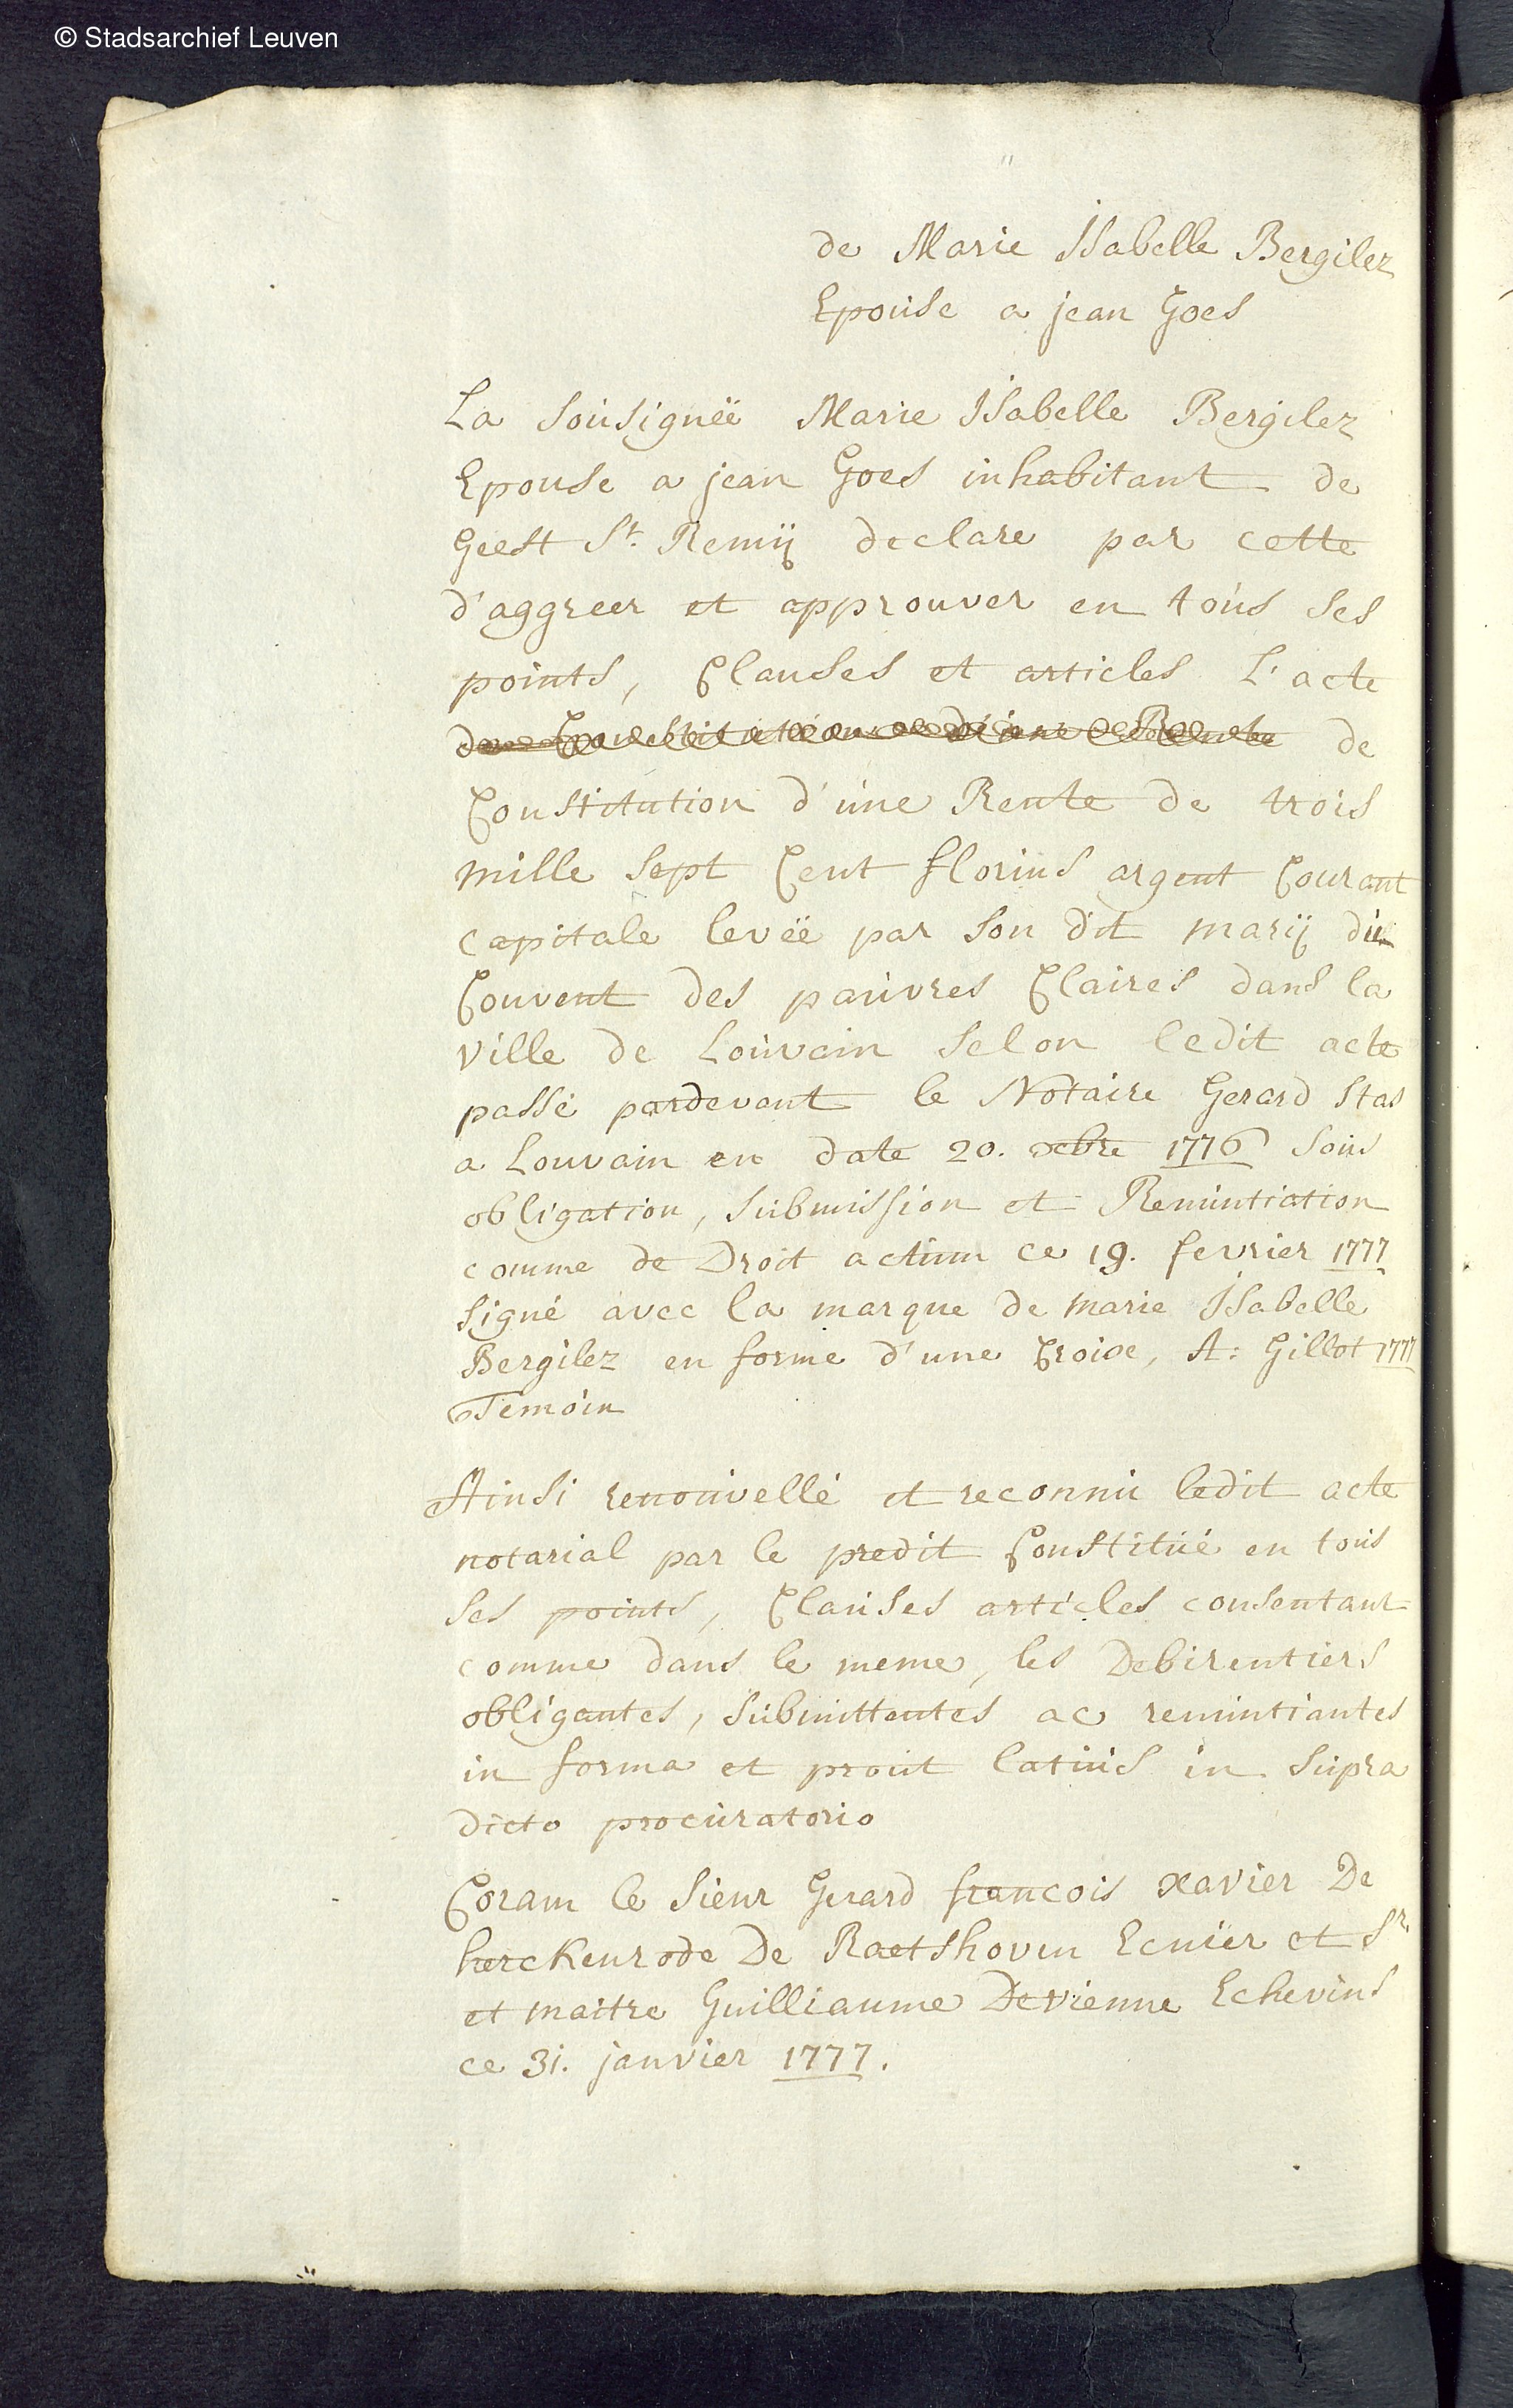 © Stadsarchief Leuven
de Marie Isabelle Bergilez
Epouse a jean Goes
La Sousignëe Marie Isabelle Bergilez
Epouse a jean Goes inhabitant de
Geest St. Remij declare par cette
d'aggreer et approuver en tous ses
points, Clauses et articles L'acte
de Constitution d'une Rente de
Constitution d'une Rente de trois
mille Sept Cent florins argent Courant
capitale levëe par Son dit marij du
Couvent des pauvres Claires dans la
ville de Louvain Selon ledit acte
passé pardevant le Notaire Gerard Stas
a Louvain en date 20. xbre 1776 Sous
obligation, Submission et Renuntiation
comme de Droit actum ce 19. fevrier 1777
Signé avec la marque de marie Isabelle
Bergilez en forme d'une Croixe, A: Gillot 1777
Temoin
Ainsi renouvellé et reconnu ledit acte
notarial par le predit Constitué en tous
Ses points, Clauses articles consentant
comme dans le meme, les Debirentiers
obligantes, Submittentes ac renuntiantes
in forma et prout latius in Supra
dicto procuratorio
Coram le Sieur Gerard francois xavier De
herckenrode De Raetshoven Ecuïer et Sr.
et maitre Guilliaume Devienne Echevins
ce 31. janvier 1777.